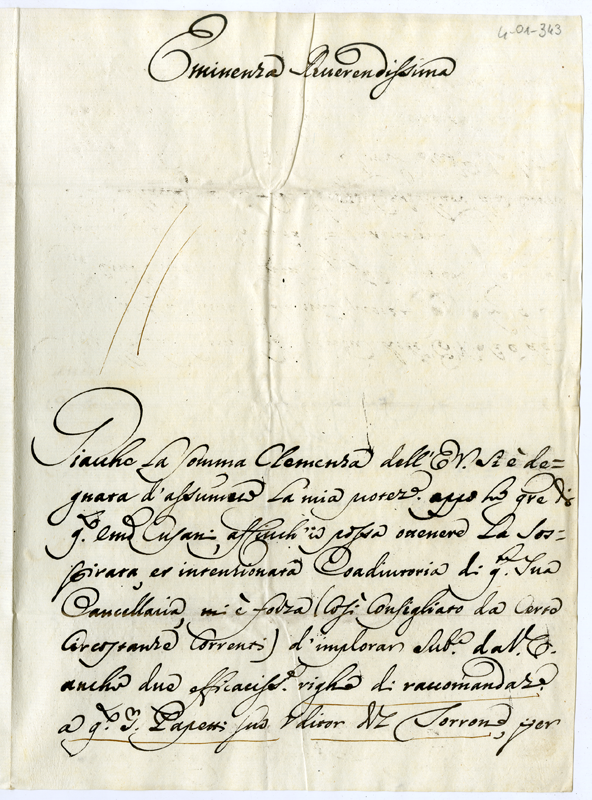 4-01-343
Eminenza Reverendissima
Giacche la somma Clemenza dell'E.V. si è de=
gnata d'assumere la mia protez.e appo lo
q.o Em.o Cusani, affinch'io possa ottenere la sos=
pirata, et intenzionata Coadiutoria di q.a Sua
Cancellaria, mi è forza (così Consigliato da Certe
Circostanze Correnti) d'implorar sub.o da V.E.
anche due efficaciss.e righe di raccomandaz.e
a q.o Papetti suo Uditor del Torrone, per